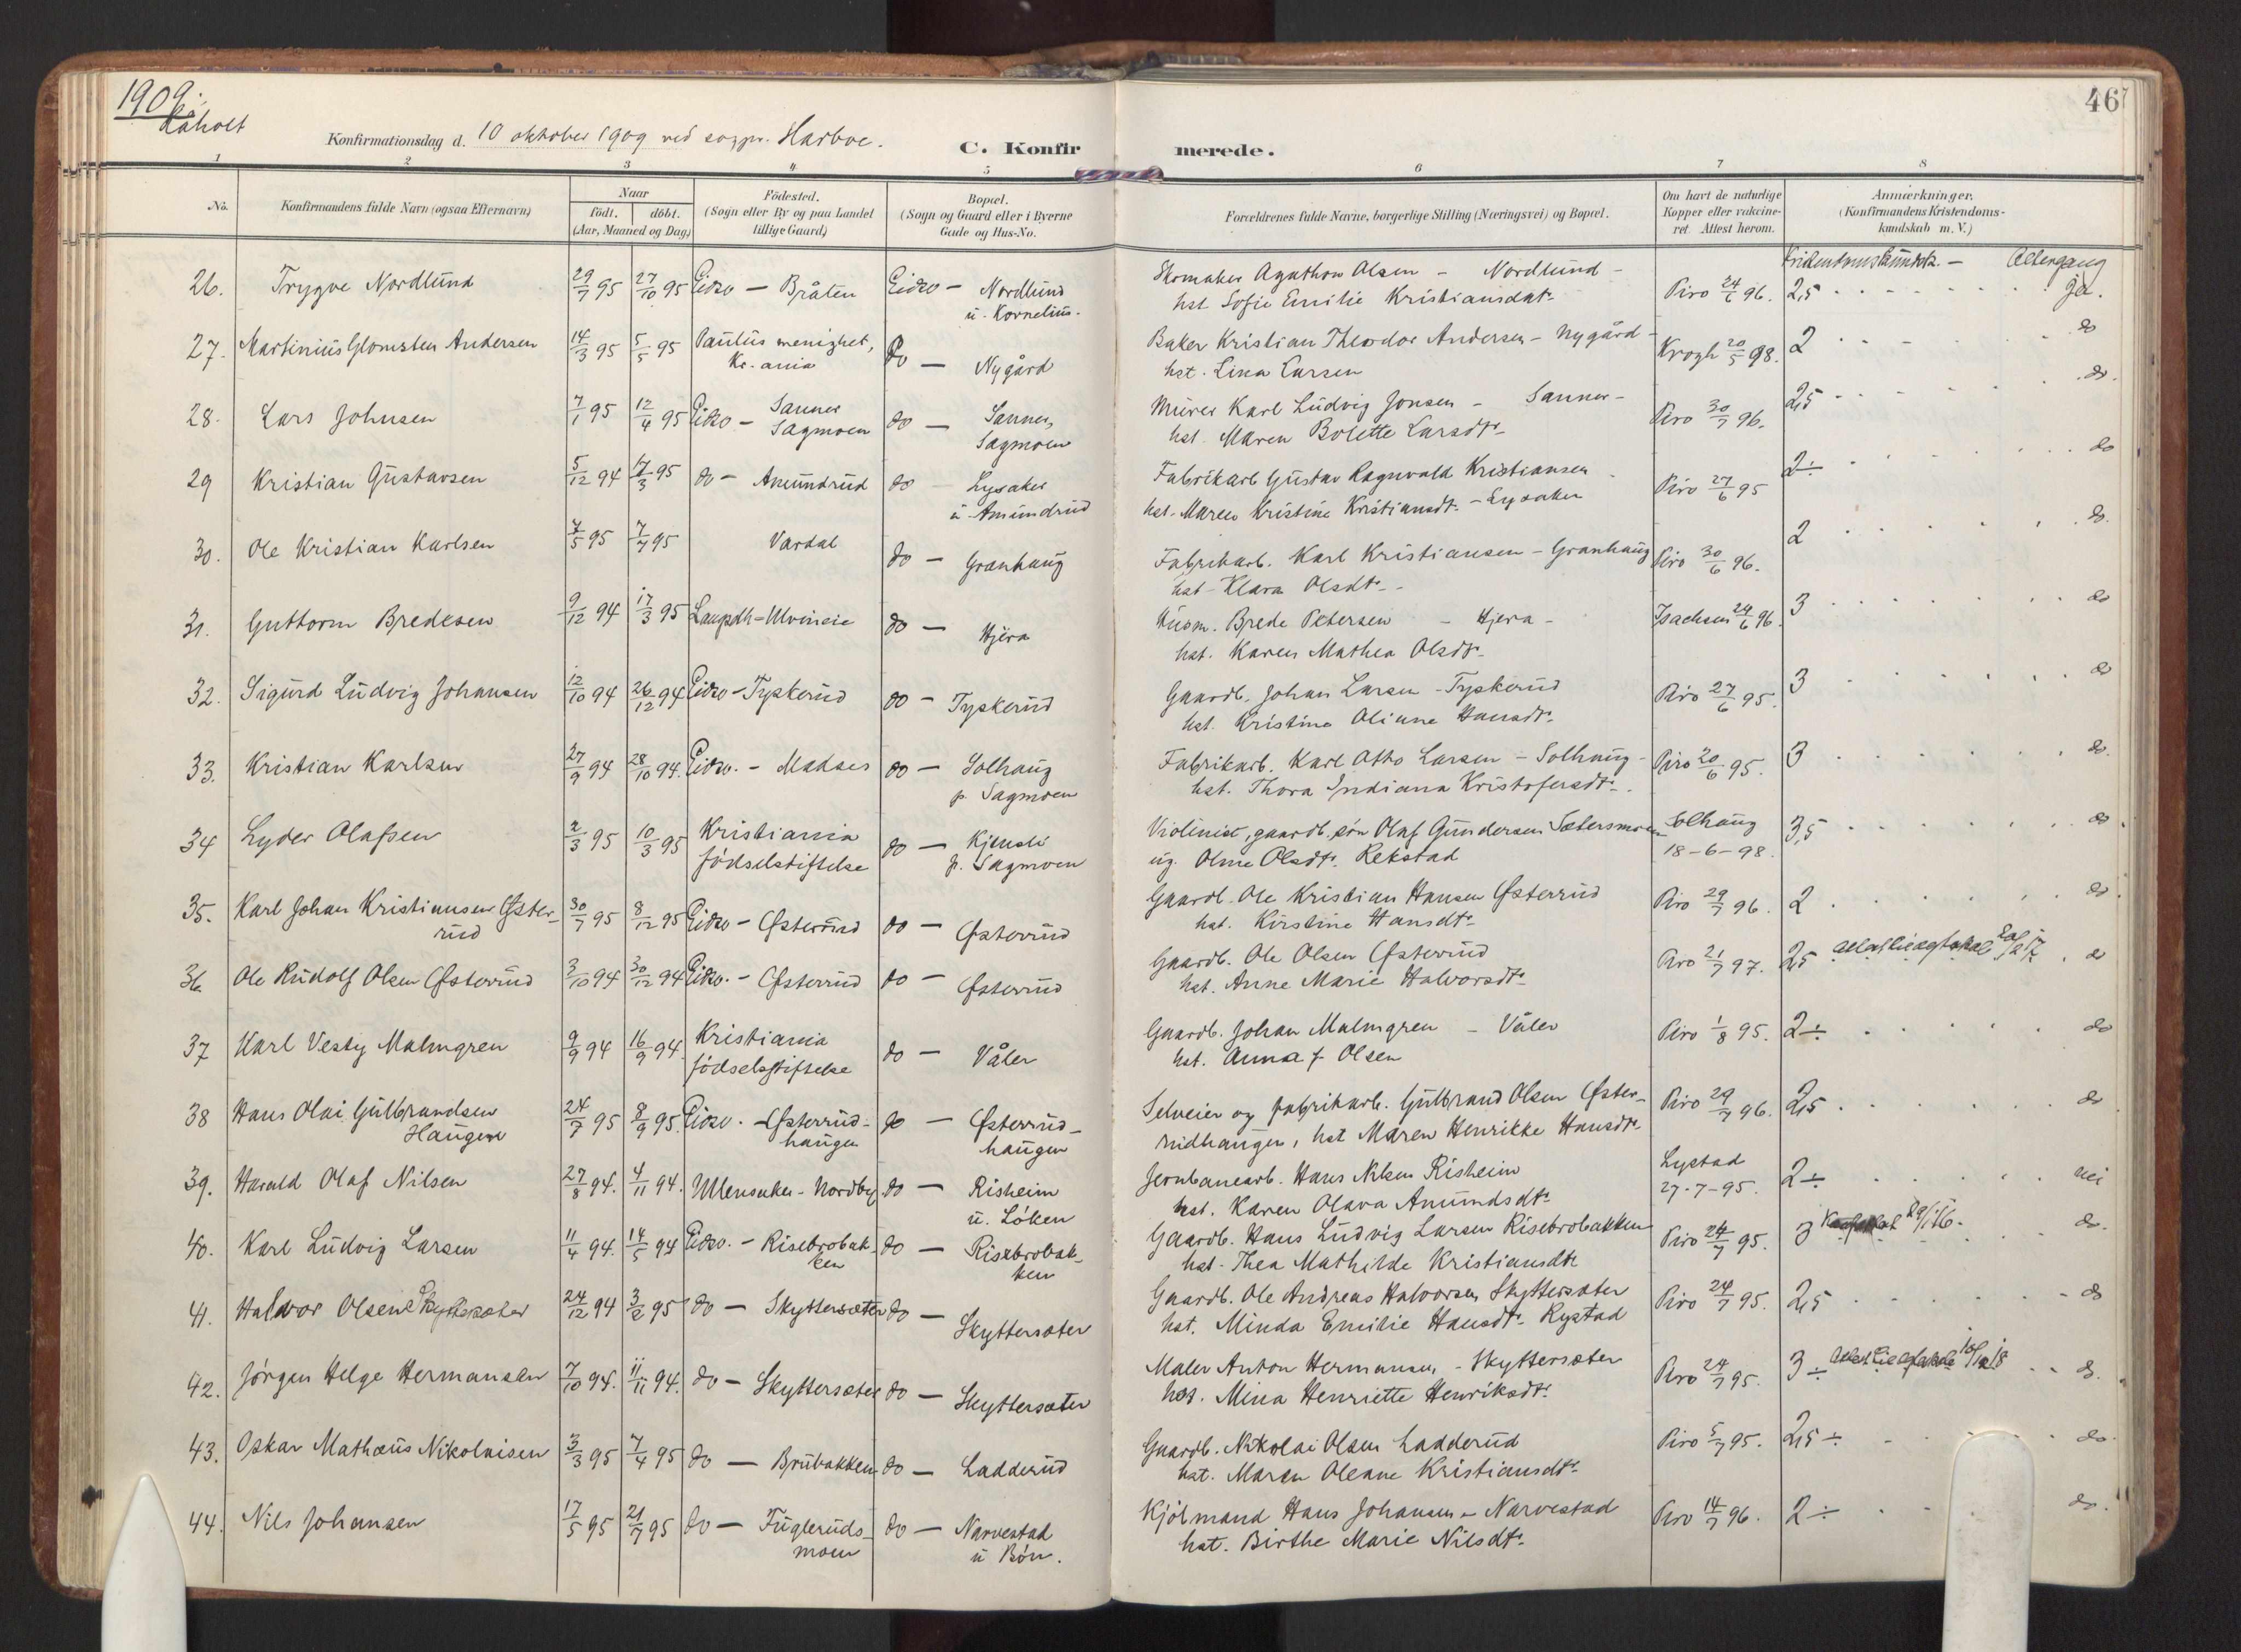 1909.
Råholt
Konfirmationsdag d. 10 oktober 1909 ved sogpr. Harboe.
C. Konfirmerede.
46
1 2 3 4 5 6 7 8
No.
Konfirmandens fulde Navn (ogsaa Efternavn)
Naar
födt. döbt.
(Aar, Maaned og Dag)
Födested.
(Sogn eller By og paa Landet
tillige Gaard)
Bopæl.
(Sogn og Gaard eller i Byerne
Gade og Hus-No.
Forældrenes fulde Navne, borgerlige Stilling (Næringsvei) og Bopæl.
Om havt de naturlige
Kopper eller vakcine-
ret. Attest herom.
Anmærkninger.
(Konfirmandens Kristendoms-
kundskab m. V.)
Kristendomskundsk. — Altergang
26. Trygve Nordlund 29/7 95 27/10 95 Eidsv — Bråten Eidsv — Nordlund
u. Kornelius.
Skomaker Agathon Olsen — Nordlund —
hst. Sofie Emilie Kristiansdt. Piro 24/6 96. 2,5 ja.
27. Martinius Glomsten Andersen 14/3 95 5/5 95 Paulus menighet,
Kr.ania do — Nygård
Baker Kristian Theodor Andersen — Nygård —
hst. Lina Larsen Krogh 20/5 98. 2 do
28. Lars Johnsen 7/1 95 12/4 95 Eidsv — Sanner
Sagmoen do — Sanner,
Sagmoen
Murer Karl Ludvig Jonsen — Sanner —
hst. Maren Bolette Larsdt. Piro 30/7 96. 2,5 do.
29 Kristian Gustavsen 5/12 94 17/3 95 do — Amundrud do — Lysaker
u. Amundrud
Fabrikarb Gustav Ragnvald Kristiansen
hst. Maren Kristine Kristiansdt. — Lysaker Piro 27/6 95 2÷ do
30. Ole Kristian Karlsen 7/5 95 7/7 95 Vardal do — Granhaug
Fabrikarb. Karl Kristiansen — Granhaug
hst. Klara Olsdt. Piro 30/6 96. 2 do.
31. Guttorm Bredesen 9/12 94 17/3 95 do — Hjera
Husm. Brede Petersen — Hjera —
hst. Karen Mathea Olsdt. Isachsen 24/6 96. 3 do
32. Sigurd Ludvig Johansen 12/10 94 26/12 94 Eidsv — Tyskerud do — Tyskerud
Gaardb. Johan Larsen — Tyskerud
hst. Kristine Oliane Hansdt. Piro 27/6 95. 3 do
33. Kristian Karlsen 27/9 94 28/10 94. Eidsv. — Madses do — Solhaug
p. Sagmoen
Fabrikarb. Karl Otto Larsen — Solhaug —
hst. Thora Indiana Kristofersdt. Piro 20/6 95. 3 do.
34 Lyder Olafsen 2/3 95 10/3 95 Kristiania
fødselsstiftelse do —
p. Sagmoen
Violinist, gaardb. søn Olaf Gundersen Sætersmoen
ug. Olme Olsdt. Rekstad Solhaug
18-6-98. 3,5 do
35. Karl Johan Kristiansen Øster-
rud 30/7 95 8/12 95 Eidsv — Østerrud do — Østerrud
Gaardb. Ole Kristian Hansen Østerrud
hst. Kirstine Hansdt. Piro 29/7 96. 2 do.
36. Ole Rudolf Olsen Østerrud 3/10 94 30/12 94 Eidsv. — Østerrud do — Østerrud
Gaardb. Ole Olsen Østerrud
hst. Anne Marie Halvorsdt. Piro 21/7 97. 2,5 do
37 Karl Vesty Malmgren 9/9 94 16/9 94. Kristiania
fødselsstiftelse do — Våler
Gaardb. Johan Malmgren — Våler
hst. Anna J Olsen Piro 1/8 95. 2÷ do
38 Hans Olai Gulbrandsen
Haugen 24/7 95 8/9 95. Eidsv. — Østerrud-
haugen do — Østerrud-
haugen
Selveier og fabrikarb. Gulbrand Olsen Øster-
rudhaugen, hst Maren Henrikke Hansdt. Piro 29/7 96. 2,5 do
39. Harald Olaf Nilsen 27/8 94. 4/11 94. Ullensaker — Nordby do — Risheim
u. Løken
Jernbanearb. Hans Nilsen Risheim
hst. Karen Olava Amundsdt. Lystad
27-7-95. 2÷ nei
40. Karl Ludvig Larsen 11/4 94. 14/5 94 Eidsv. — Risebrobak-
ken do — Risebrobak-
ken
Gaardb. Hans Ludvig Larsen Risebrobakken
hst. Thea Mathilde Kristiansdt. Piro 24/7 95. 3 do.
41. Halvor Olsen Skyttersæter 24/12 94 3/2 95 do — Skyttersæter do — Skyttersæter
Gaardb. Ole Andreas Halvorsen Skyttersæter
hst. Minda Emilie Hansdt. Rystad Piro 24/7 95. 2,5 do
42. Jørgen Helge Hermansen 7/10 94. 11/11 94. do — Skyttersæter do — Skyttersæter
Maler Anton Hermansen — Skyttersæter
hst. Mina Henriette Henriksdt. Piro 24/7 95. 3÷ do.
43. Oskar Mathæus Nikolaisen 3/3 95 7/4 95 do — Brubakken do — Ladderud
Gaardb. Nikolai Olsen Ladderud
hst. Maren Oleane Kristiansdt. Piro 5/7 95. 2,5÷ do.
44. Nils Johansen 17/5 95 21/7 95 do — Fugleruds-
moen do — Narvestad
u Bøn.
Kjølmand Hans Johansen — Narvestad
hst. Birthe Marie Nilsdt. Piro 14/7 96. 2÷ do.